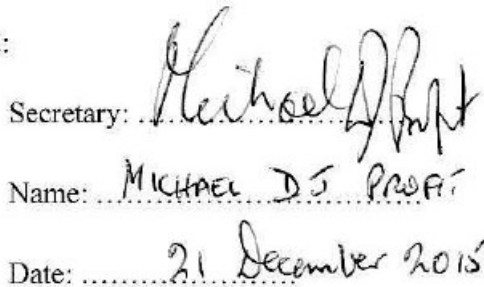 :
Secretary: Michael DJ Profit
Name: MICHAEL DJ PROFIT
Date: 21 December 2015